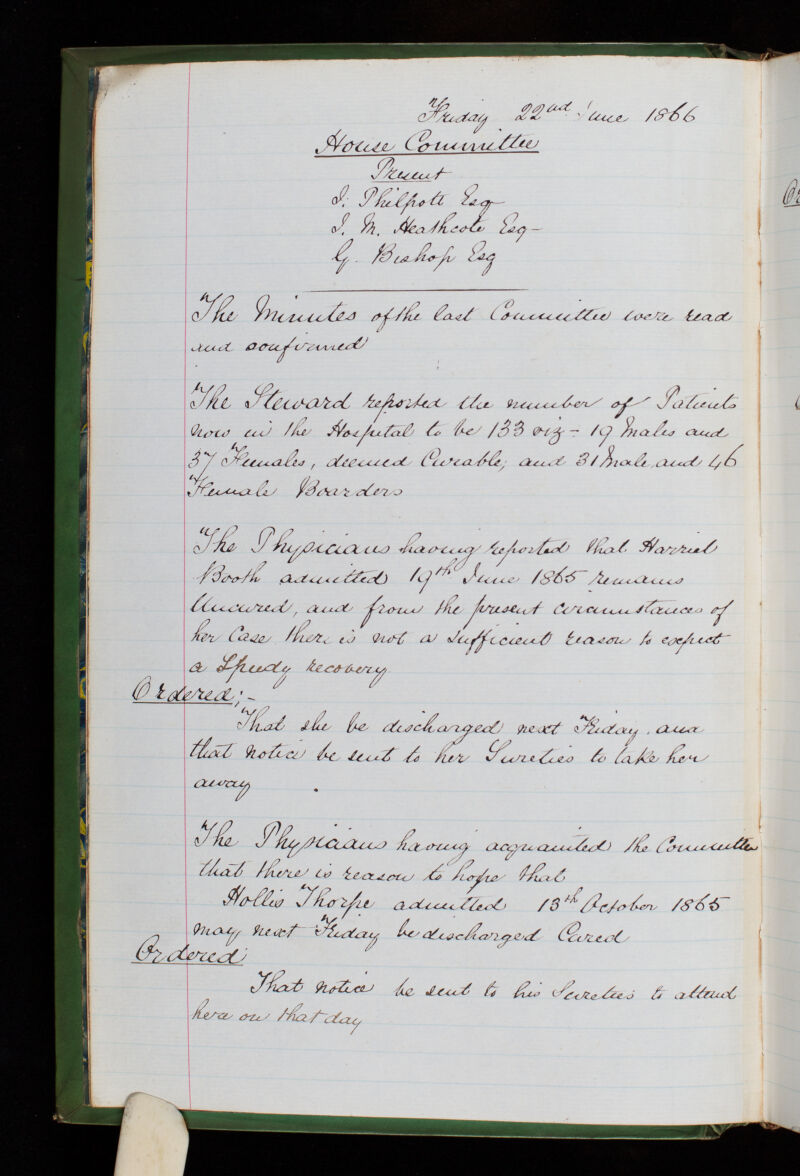 Friday 22nd June 1866
House Committee
Present
I. Philpott Esq
I. M. Heathcote Esq-
G. Bishop Esq
The Minutes of the last Committee were read
and confirmed
The Steward reported the number of Patients
now in the Hospital to be 133 viz - 19 Males and
37 Females, deemed Curable; and 31 Male and 46
Female Boarders
The Physicians having reported that Harriet
Booth admitted 19th June 1865 remains
Uncured, and from the present circumstances of
her Case there is not a sufficient reason to expect
a Speedy recovery
Ordered;-
That she be discharged next Friday. and
that notice be sent to her Sureties to take her
away
The Physicians having acquainted the Committee
that there is reason to hope that
Hollis Thorpe admitted 13th October 1865
may next Friday be discharged Cured
Ordered
That notice be sent to his Sureties to attend
here on that day
Or